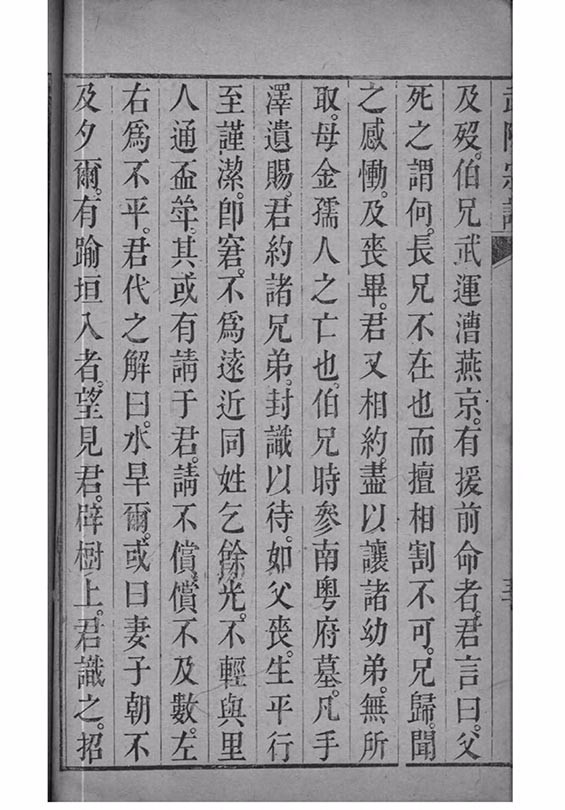 及歿。伯兄武運漕燕京。有援前命者。君言曰。父
死之謂何。長兄不在也而擅相割不可。兄歸。聞
之感慟。及喪畢。君又相約。盡以讓諸幼弟。無所
取。母金孺人之亡也。伯兄時參南粵府墓。凡手
澤遺賜。君約諸兄弟。封識以待。如父喪。生平行
至謹潔。卽窘。不爲遠近同姓乞餘光。不輕與里
人通盃斝。其或有請于君。請不償。償不及數。左
右爲不平。君代之解曰。水旱爾。或曰妻子朝不
及夕爾。有踰垣入者。望見君。辟樹上。君識之。招